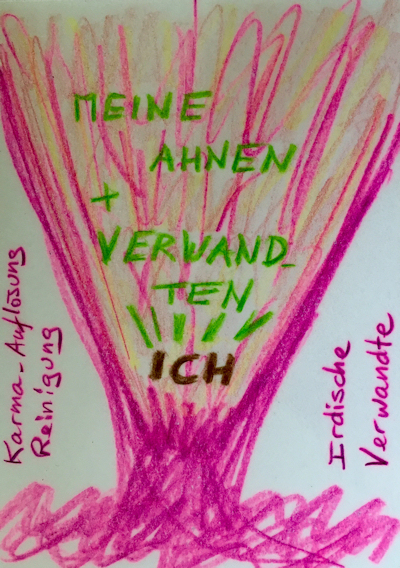 MEINE
AHNEN
+
VERWAND_
TEN
ICH
Karma-Auflösung
Reinigung
Irdische
Verwandte